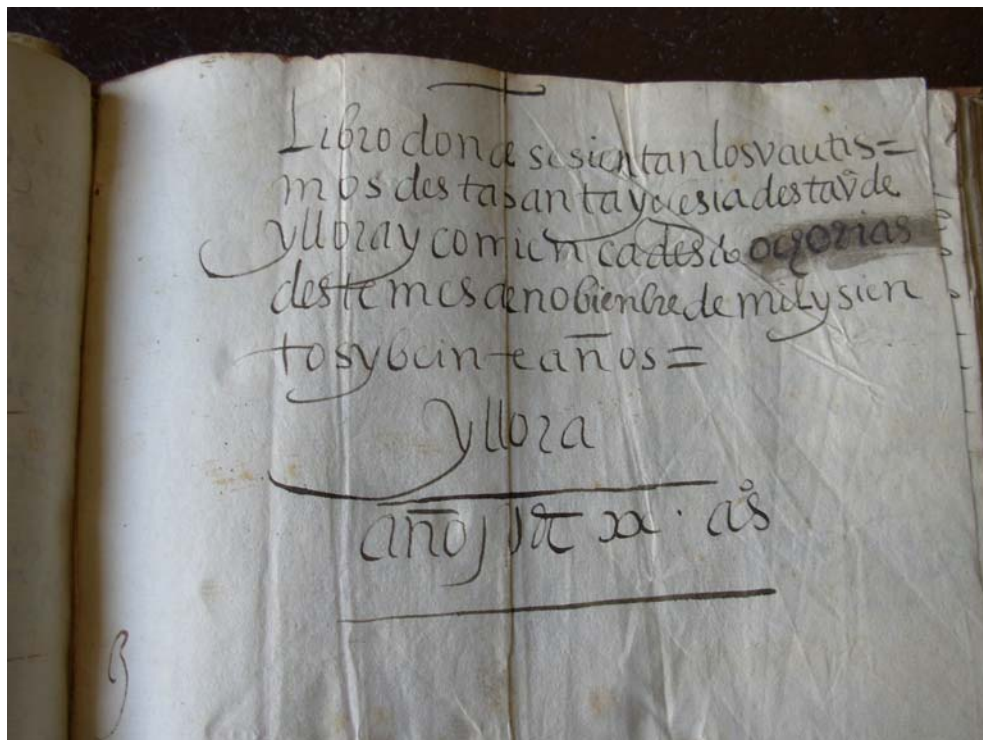 Libro donde se sientan los vautis=
mos desta santa yglesia desta vª de
yllora y comiença desde
deste mes de nobienbre de mil y sien
tos y beinte años =
yllora
año
xx. aºs